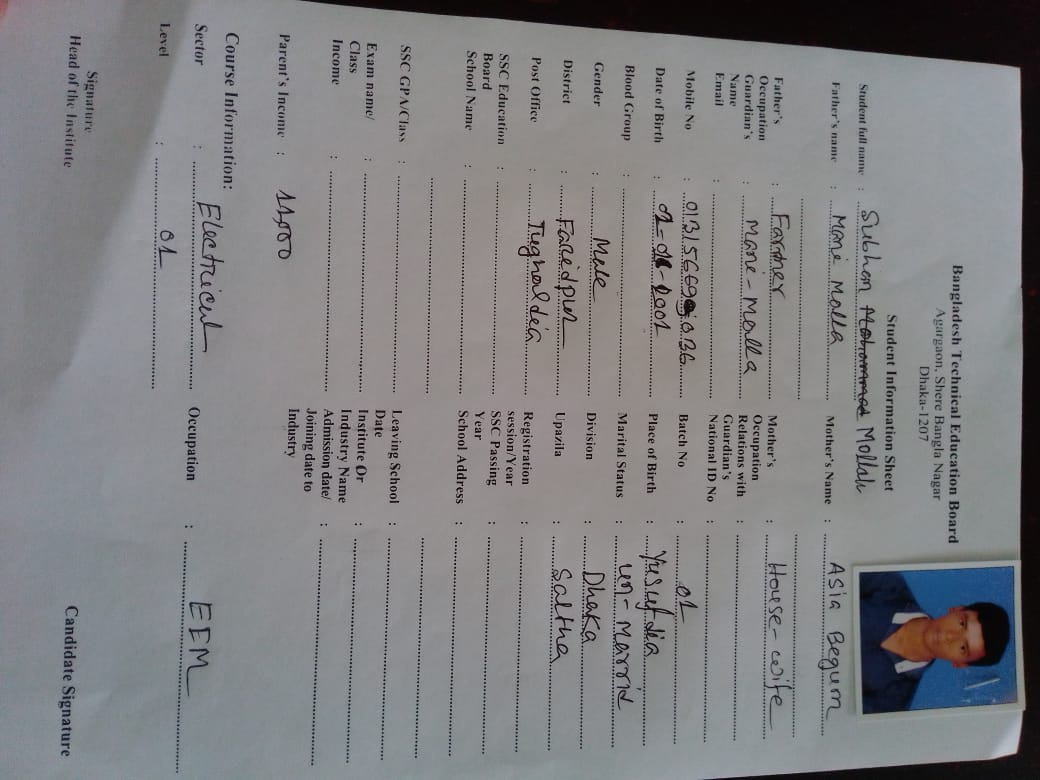 Bangladesh Technical Education Board
Agargaon, Shere Bangla Nagar
Dhaka-1207
Student Information Sheet
Student full name : Subhan Mollah
Father's name : Mani Molla Mother's Name : Asia Begum
Father's Occupation : Farmer Mother's Occupation : House-wife
Guardian's Name : Mani-Malla Relations with Guardian's :
Email : National ID No :
Mobile No : Batch No : 01
Date of Birth : Place of Birth : Yusufdia
Blood Group : Marital Status : un-Marrid
Gender : Male Division : Dhaka
District : Faredpur Upazila : Saltha
Post Office : Registration session/Year :
SSC Education Board : SSC Passing Year :
School Name : School Address :
SSC GPA/Class : Leaving School Date :
Exam name/ Class : Institute Or Industry Name :
Income : Admission date/ Joining date to Industry :
Parent's Income : 11,000
Course Information:
Sector : Electrical Occupation : EEM
Level : 01
Signature
Head of the Institute Candidate Signature